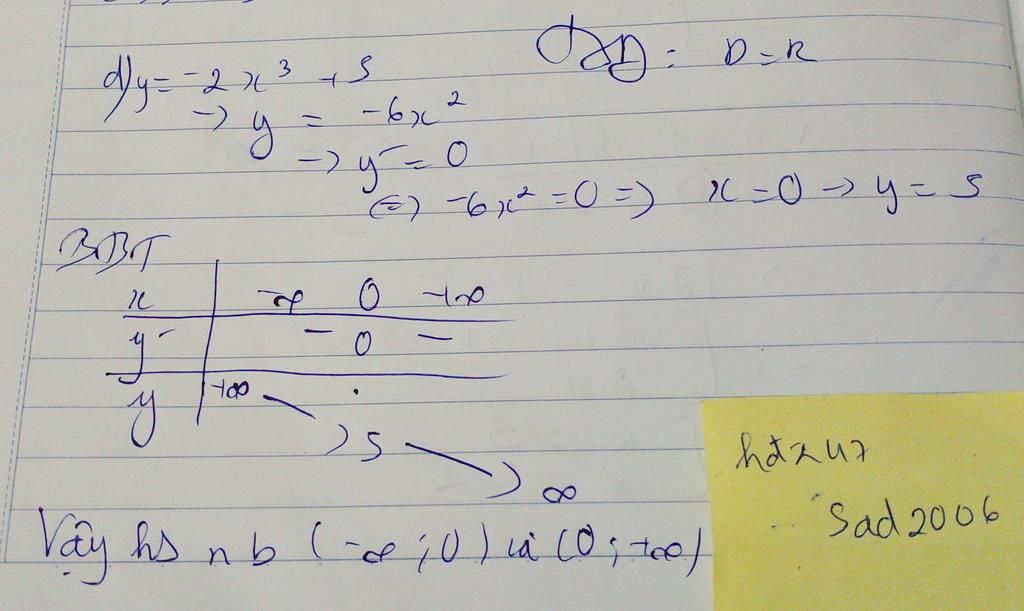 d) y = -2x³ + 5 TXD: D = R
→ y' = -6x²
→ y' = 0
⇔ -6x² = 0 ⇒ x = 0 → y = 5
BBT
x -∞ 0 +∞
y' - 0 -
y +∞ 5 ∞
Vậy hs nb (-∞; 0) và (0; +∞)
Sad2006